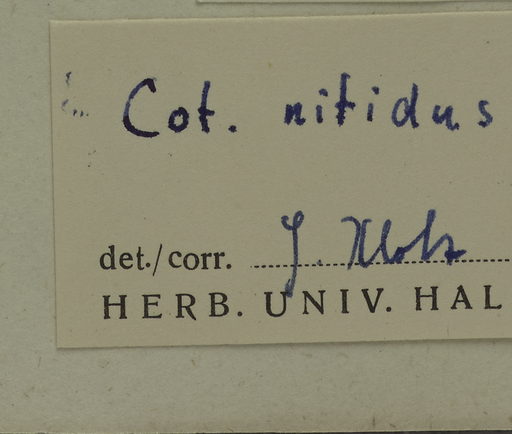 Cot. nitidus
det./corr. J. Klotz
HERB. UNIV. HAL